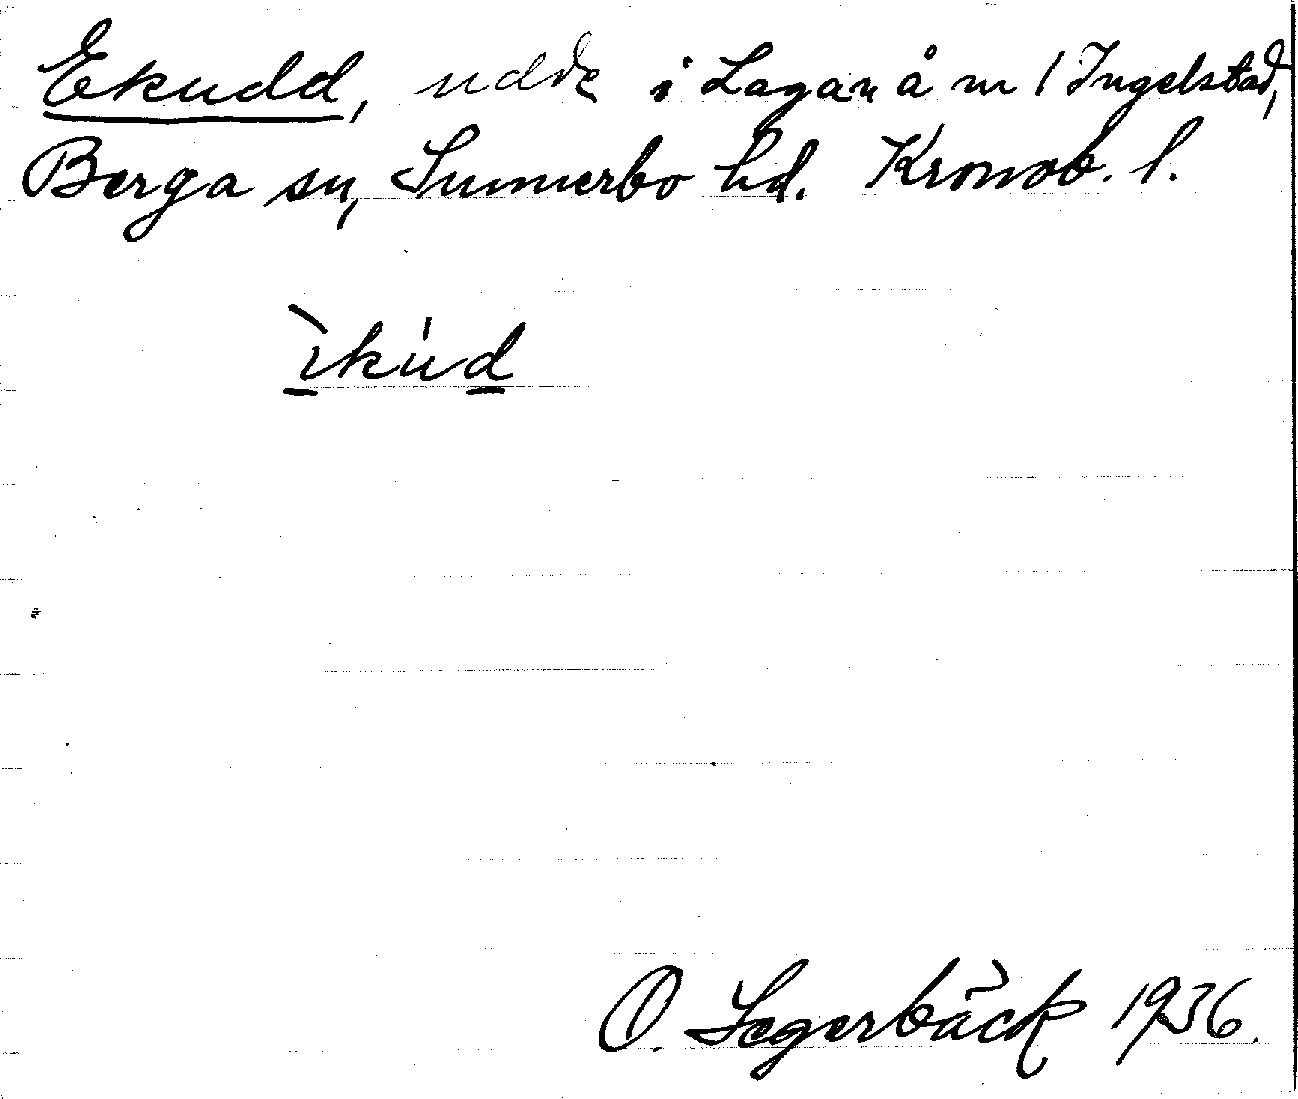 Ekudd, udde i Lagan å m / Ingelstad,
Berga sn, Sunnerbo hd. Kronob. l.
ìkúd
O. Segerbäck 1936.